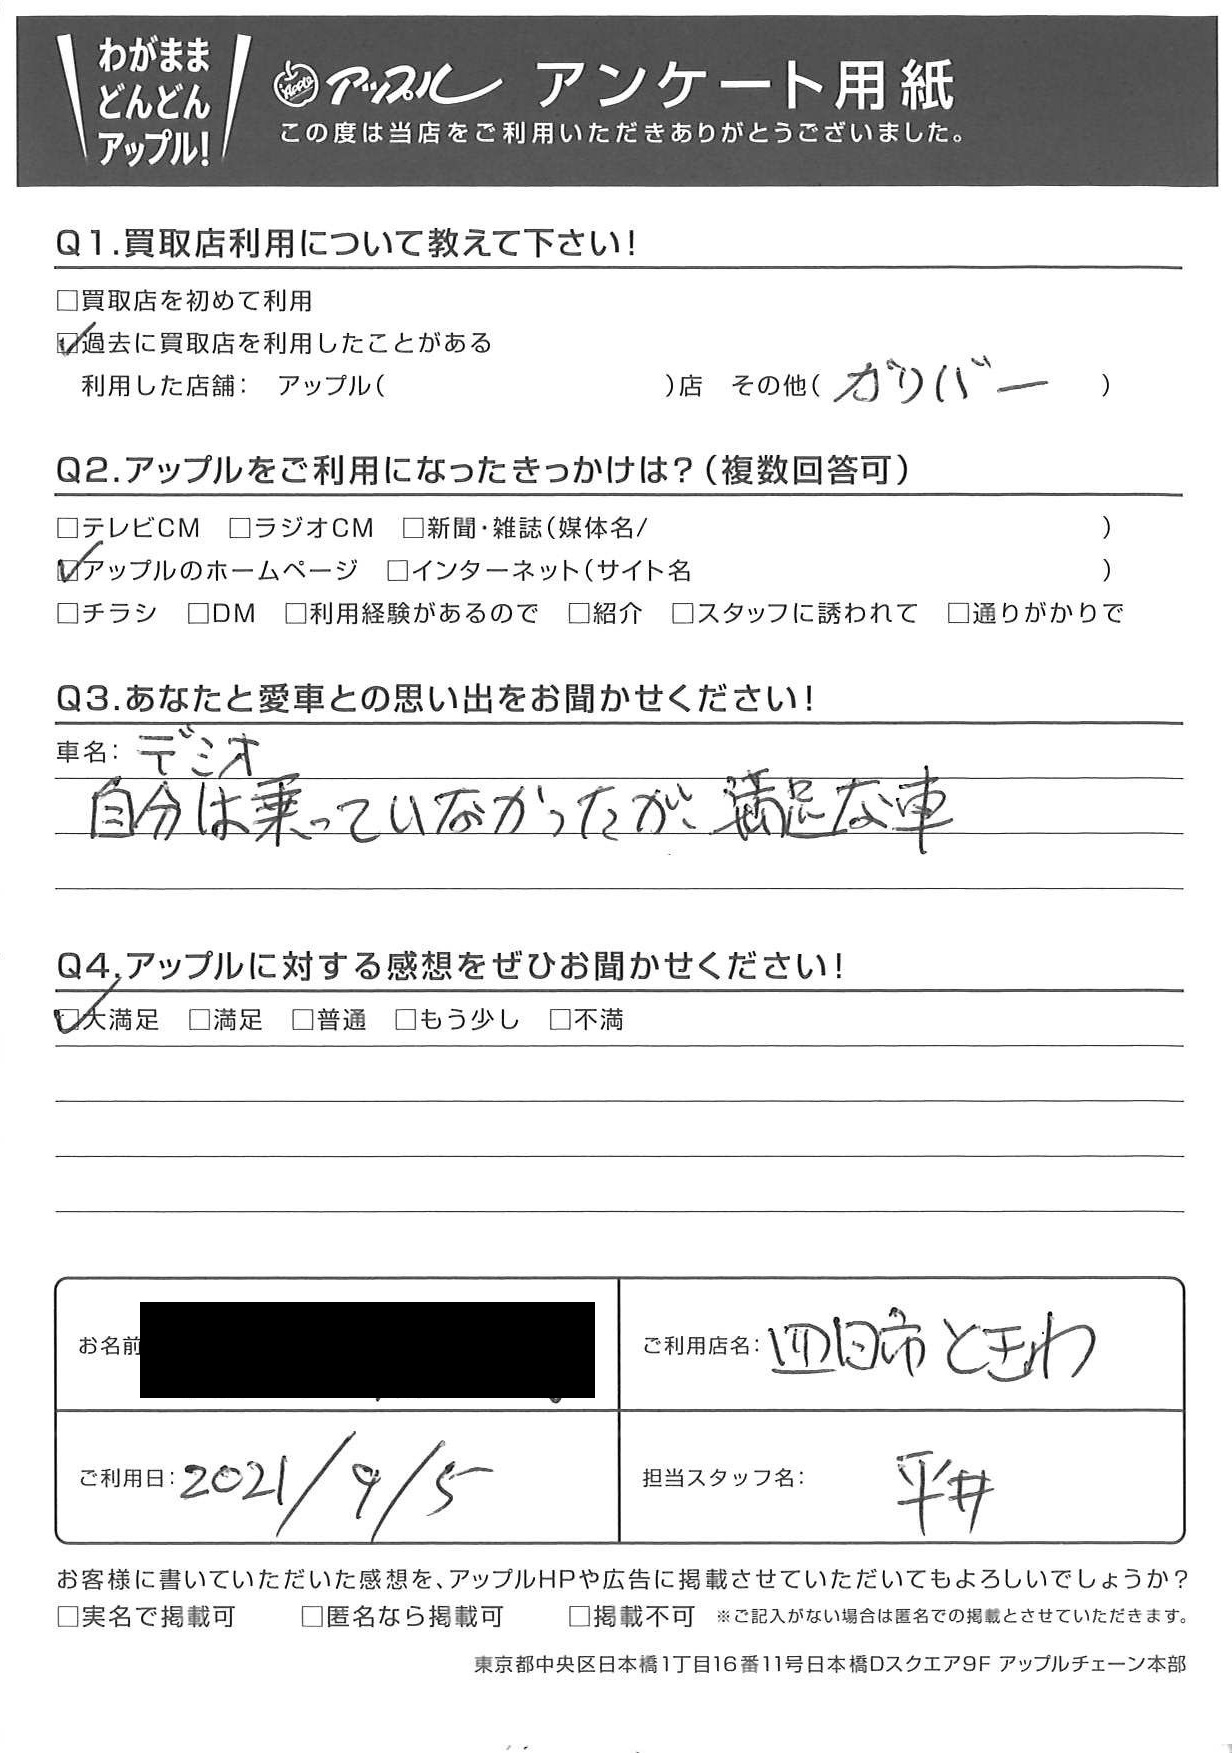 わがまま
どんどん
アップル!
Apple アップル アンケート用紙
この度は当店をご利用いただきありがとうございました。
Q1.買取店利用について教えて下さい!
□買取店を初めて利用
☑過去に買取店を利用したことがある
利用した店舗: アップル( )店 その他( ガリバー )
Q2.アップルをご利用になったきっかけは?(複数回答可)
□テレビCM □ラジオCM □新聞・雑誌(媒体名/ )
☑アップルのホームページ □インターネット(サイト名 )
□チラシ □DM □利用経験があるので □紹介 □スタッフに誘われて □通りがかりで
Q3.あなたと愛車との思い出をお聞かせください!
車名: デミオ
自分は乗っていなかったが、満足な車
Q4.アップルに対する感想をぜひお聞かせください!
☑大満足 □満足 □普通 □もう少し □不満
お名前
ご利用店名: 四日市ときわ
ご利用日: 2021/9/5
担当スタッフ名: 平井
お客様に書いていただいた感想を、アップルHPや広告に掲載させていただいてもよろしいでしょうか?
□実名で掲載可 □匿名なら掲載可 □掲載不可 ※ご記入がない場合は匿名での掲載とさせていただきます。
東京都中央区日本橋1丁目16番11号日本橋Dスクエア9F アップルチェーン本部